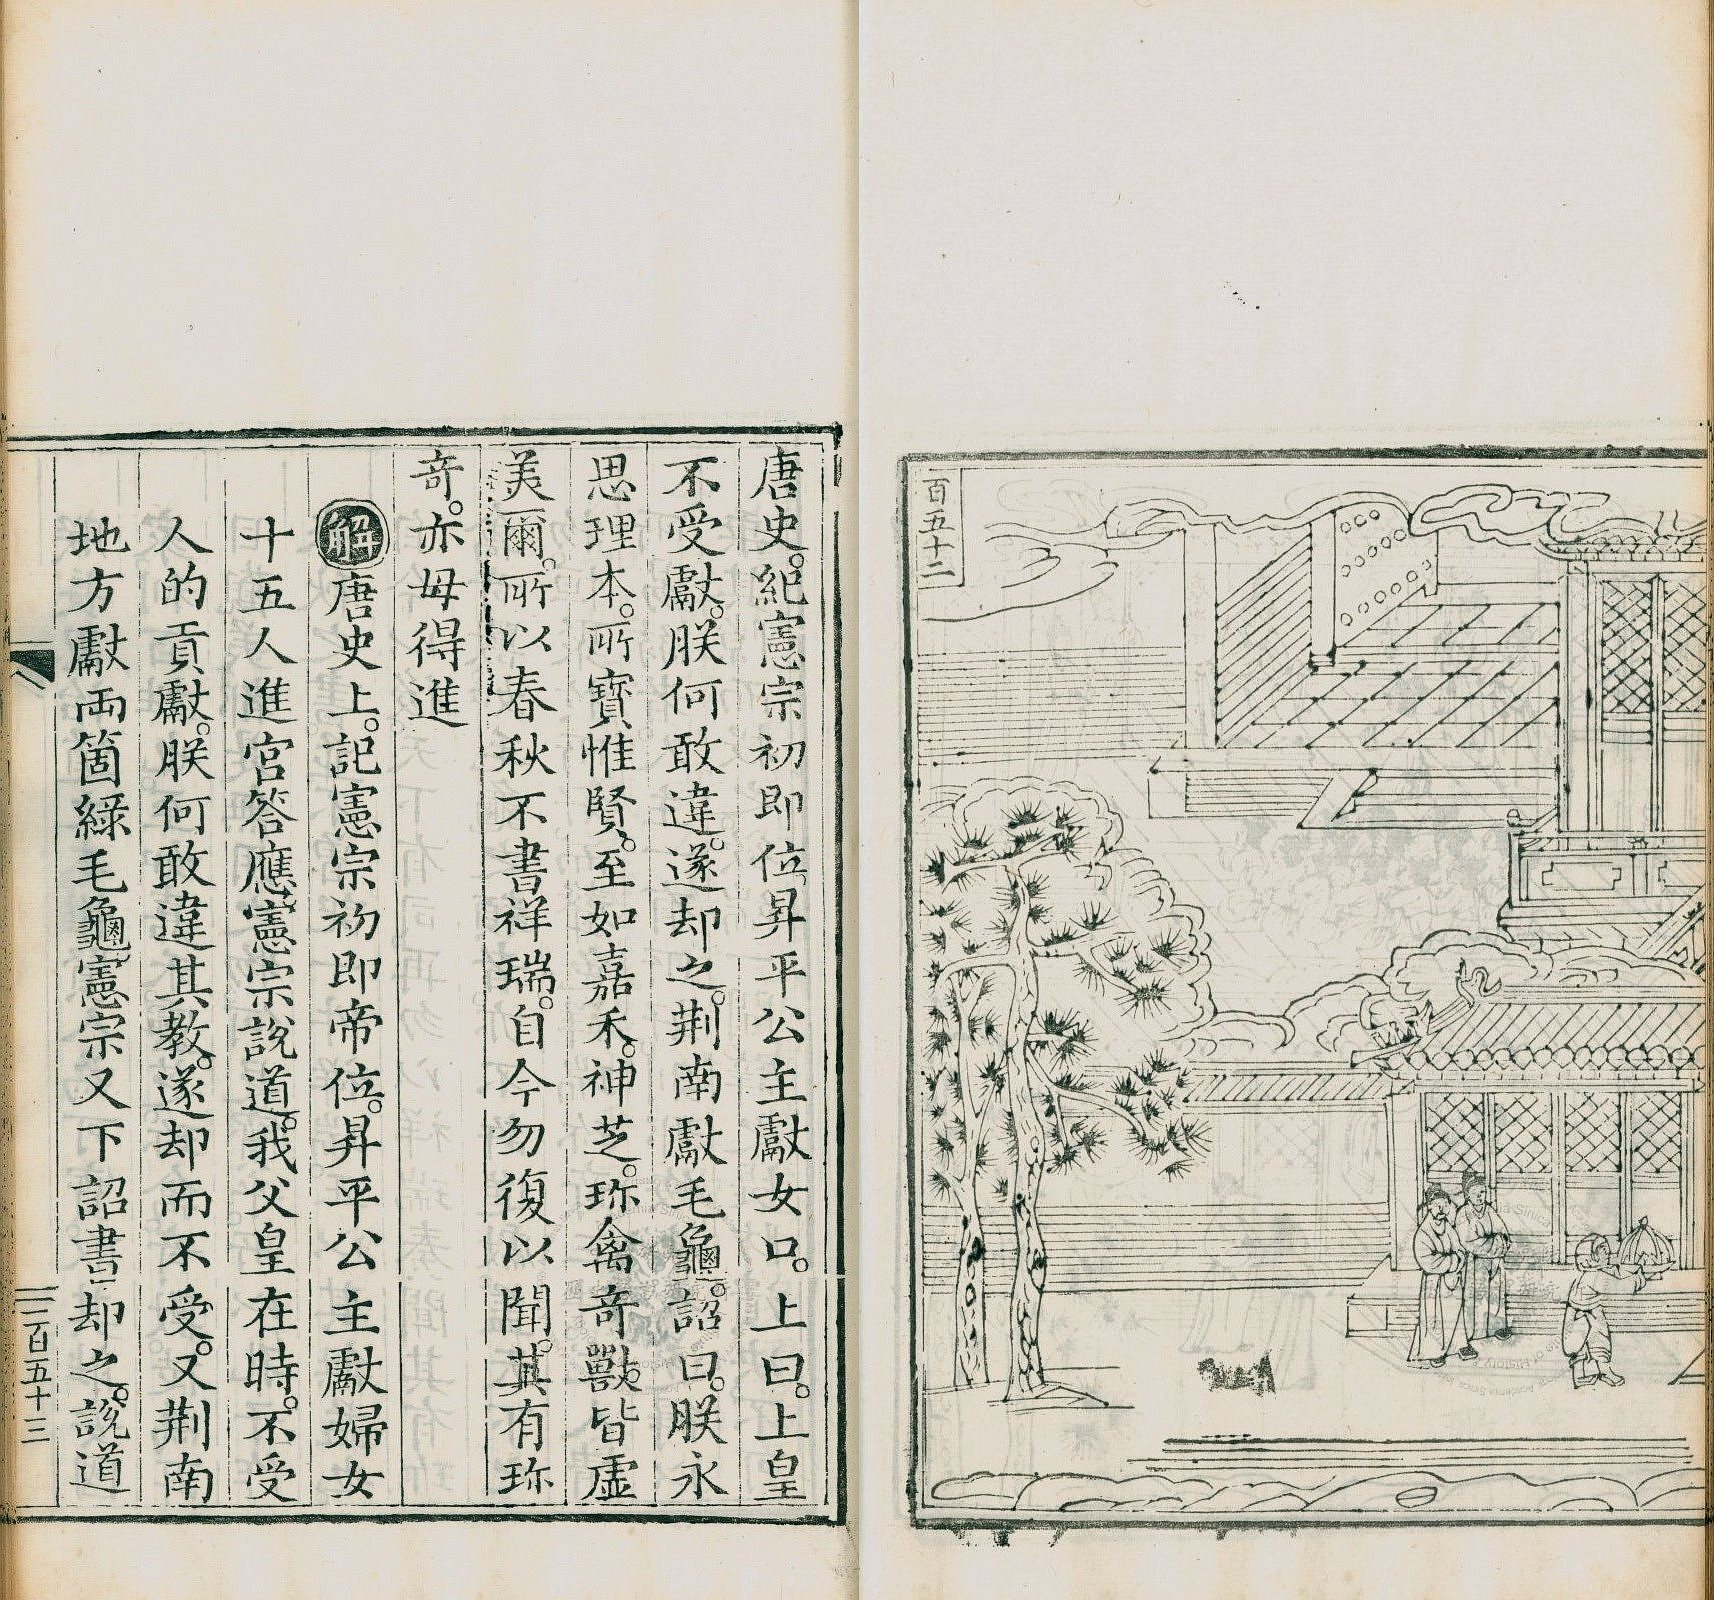 百五十二
唐史。紀憲宗初即位。昇平公主獻女口。上曰。上皇
不受獻。朕何敢違。遂却之。荆南獻毛龜。詔曰。朕永
思理本。所寶惟賢。至如嘉禾。神芝。珎禽竒獸。皆虛
美爾。所以春秋不書祥瑞。自今勿復以聞。其有珎
竒。亦毋得進
解唐史上。記憲宗初即帝位。昇平公主獻婦女
十五人進宫答應。憲宗説道。我父皇在時。不受
人的貢獻。朕何敢違其教。遂却而不受。又荆南
地方獻両箇綠毛龜。憲宗又下詔書却之。説道
二百五十三